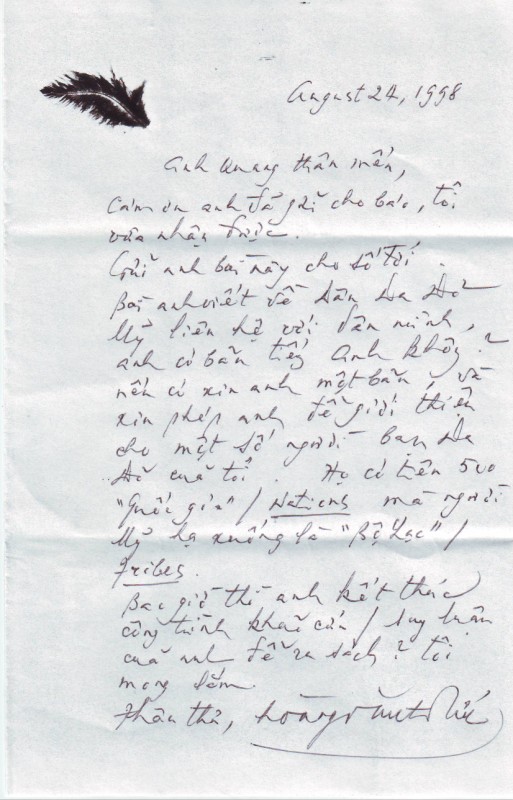 August 24, 1998
Anh Quang thân mến,
Cám ơn anh đã gửi cho báo, tôi
vừa nhận được.
Gửi anh bài này cho số tới.
Bài anh viết về dân Da Đỏ
Mỹ liên hệ với dân mình,
anh có bản tiếng Anh không?
nếu có xin anh một bản, và
xin phép anh để giới thiệu
cho một số người bạn Da
Đỏ của tôi. Họ có trên 500
"Quốc gia" / Nations mà người
Mỹ hạ xuống là "Bộ Lạc" /
Tribes.
Bao giờ thì anh kết thúc
công trình khảo cứu / suy luận
của anh để ra sách? Tôi
mong lắm.
Thân thư,